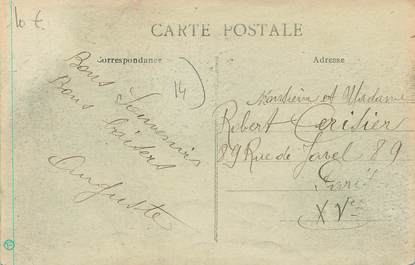 10 €
CARTE POSTALE
Correspondance
Adresse
14
Bons Souvenirs
Bons baisers
Auguste
Monsieur et Madame
Robert Cerisier
89 Rue de Javel 89
Paris
XVe